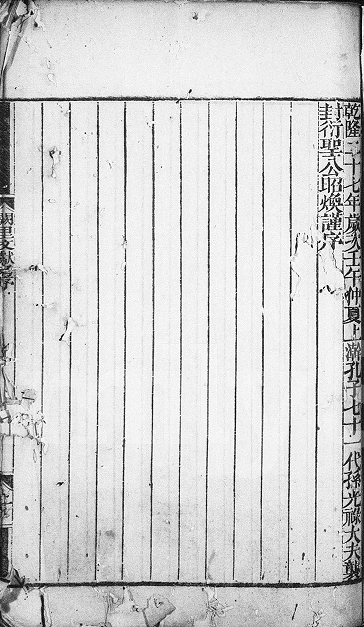 乾隆二十七年歲次壬午仲夏上澣孔子七十一代孫光祿大夫襲
封衍聖公昭煥謹序
闕里文獻考序